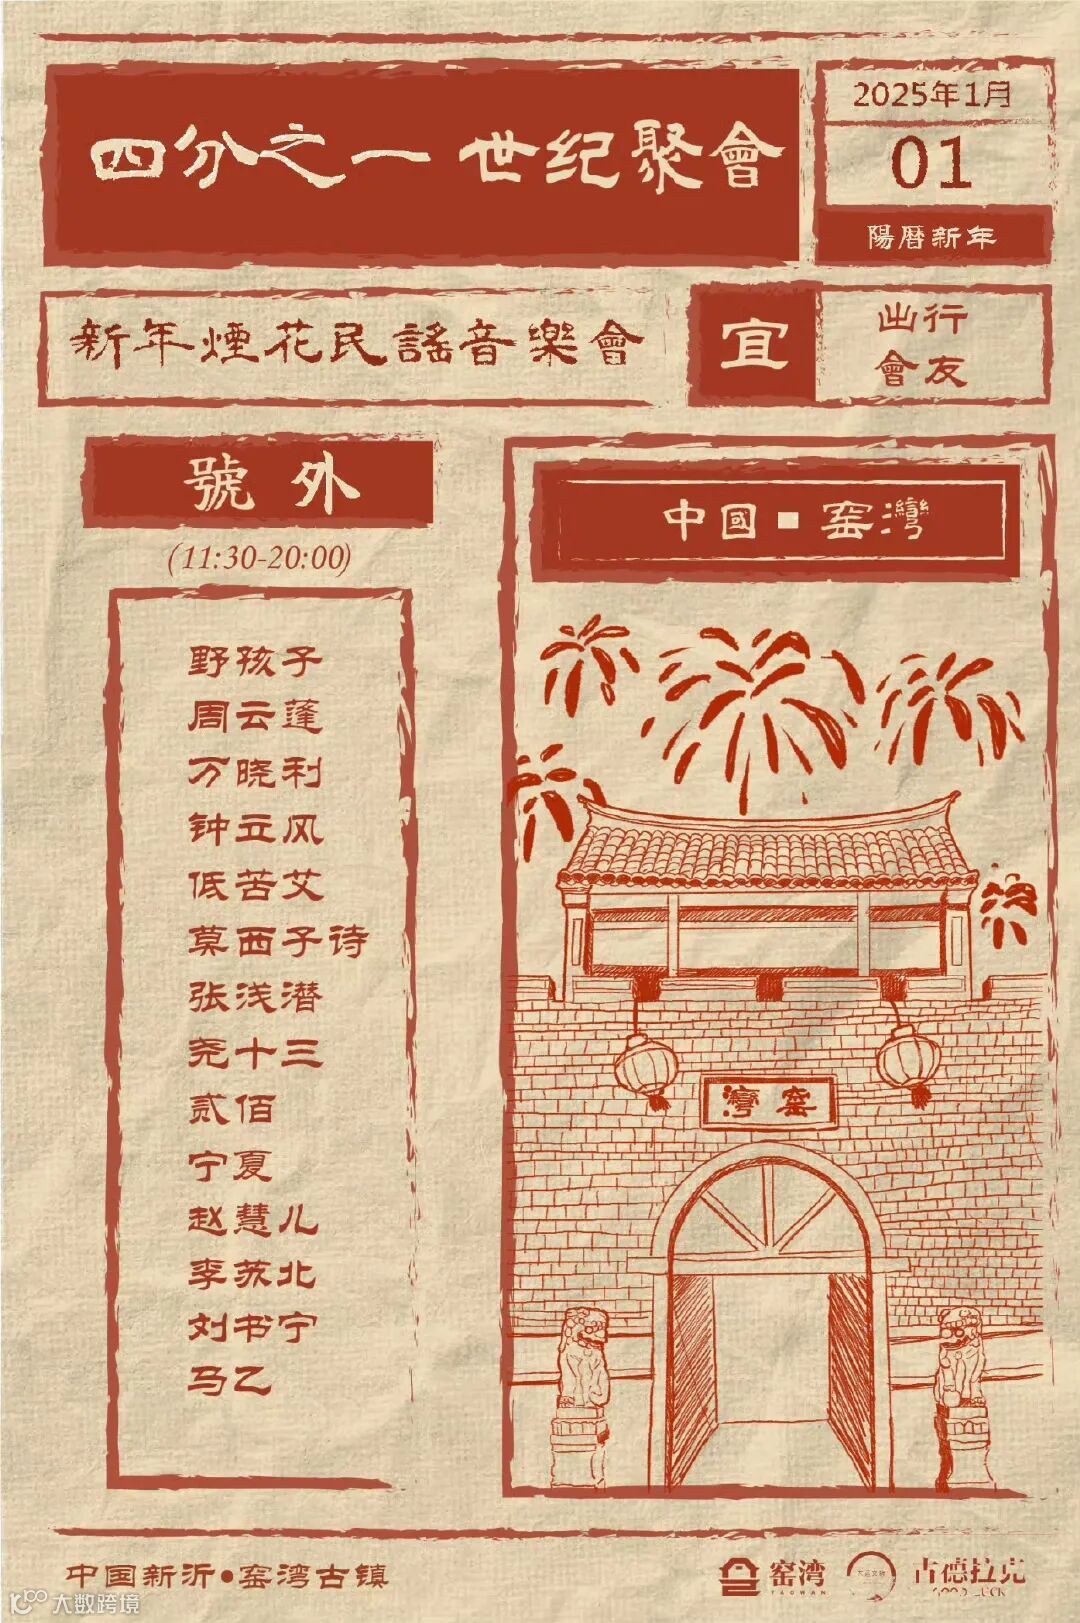 四分之一 世纪聚會
2025年1月
01
陽曆新年
新年煙花民謠音樂會
宜
出行
會友
號外
(11:30-20:00)
中國■窑灣
野孩子
周云蓬
万晓利
钟立风
低苦艾
莫西子诗
张浅潜
尧十三
贰佰
宁夏
赵慧儿
李苏北
刘书宁
马乙
灣窑
中国新沂•窑湾古镇
窑湾
YAOWAN
古德拉克
GOOD LUCK
大数跨境